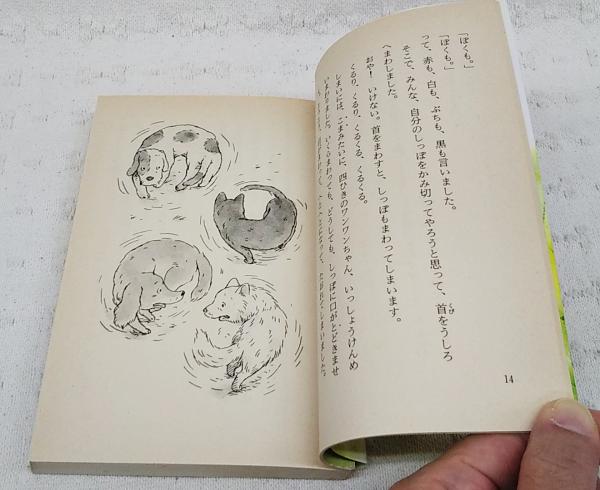 「ぼくも。」
「ぼくも。」
って、赤も、白も、ぶちも、黒も言いました。
そこで、みんな、自分のしっぽをかみ切ってやろうと思って、首をうしろ
くび
へまわしました。
おや！　いけない。首をまわすと、しっぽもまわってしまいます。
くるり、くるり、くるくる、くるくる。
しまいには、こまみたいに、四ひきのワンワンちゃん、いっしょうけんめ
いまわりました。いくらまわっても、どうしても、しっぽに口がとどきませ
14